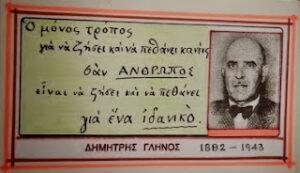 Ὁ μόνος τρόπος
γιὰ νὰ ζήσει καὶ νὰ πεθάνει κανείς
σὰν ΑΝΘΡΩΠΟΣ
εἶναι νὰ ζήσει καὶ νὰ πεθάνει
γιὰ ἕνα ἰδανικό.
ΔΗΜΗΤΡΗΣ ΓΛΗΝΟΣ 1882 - 1943